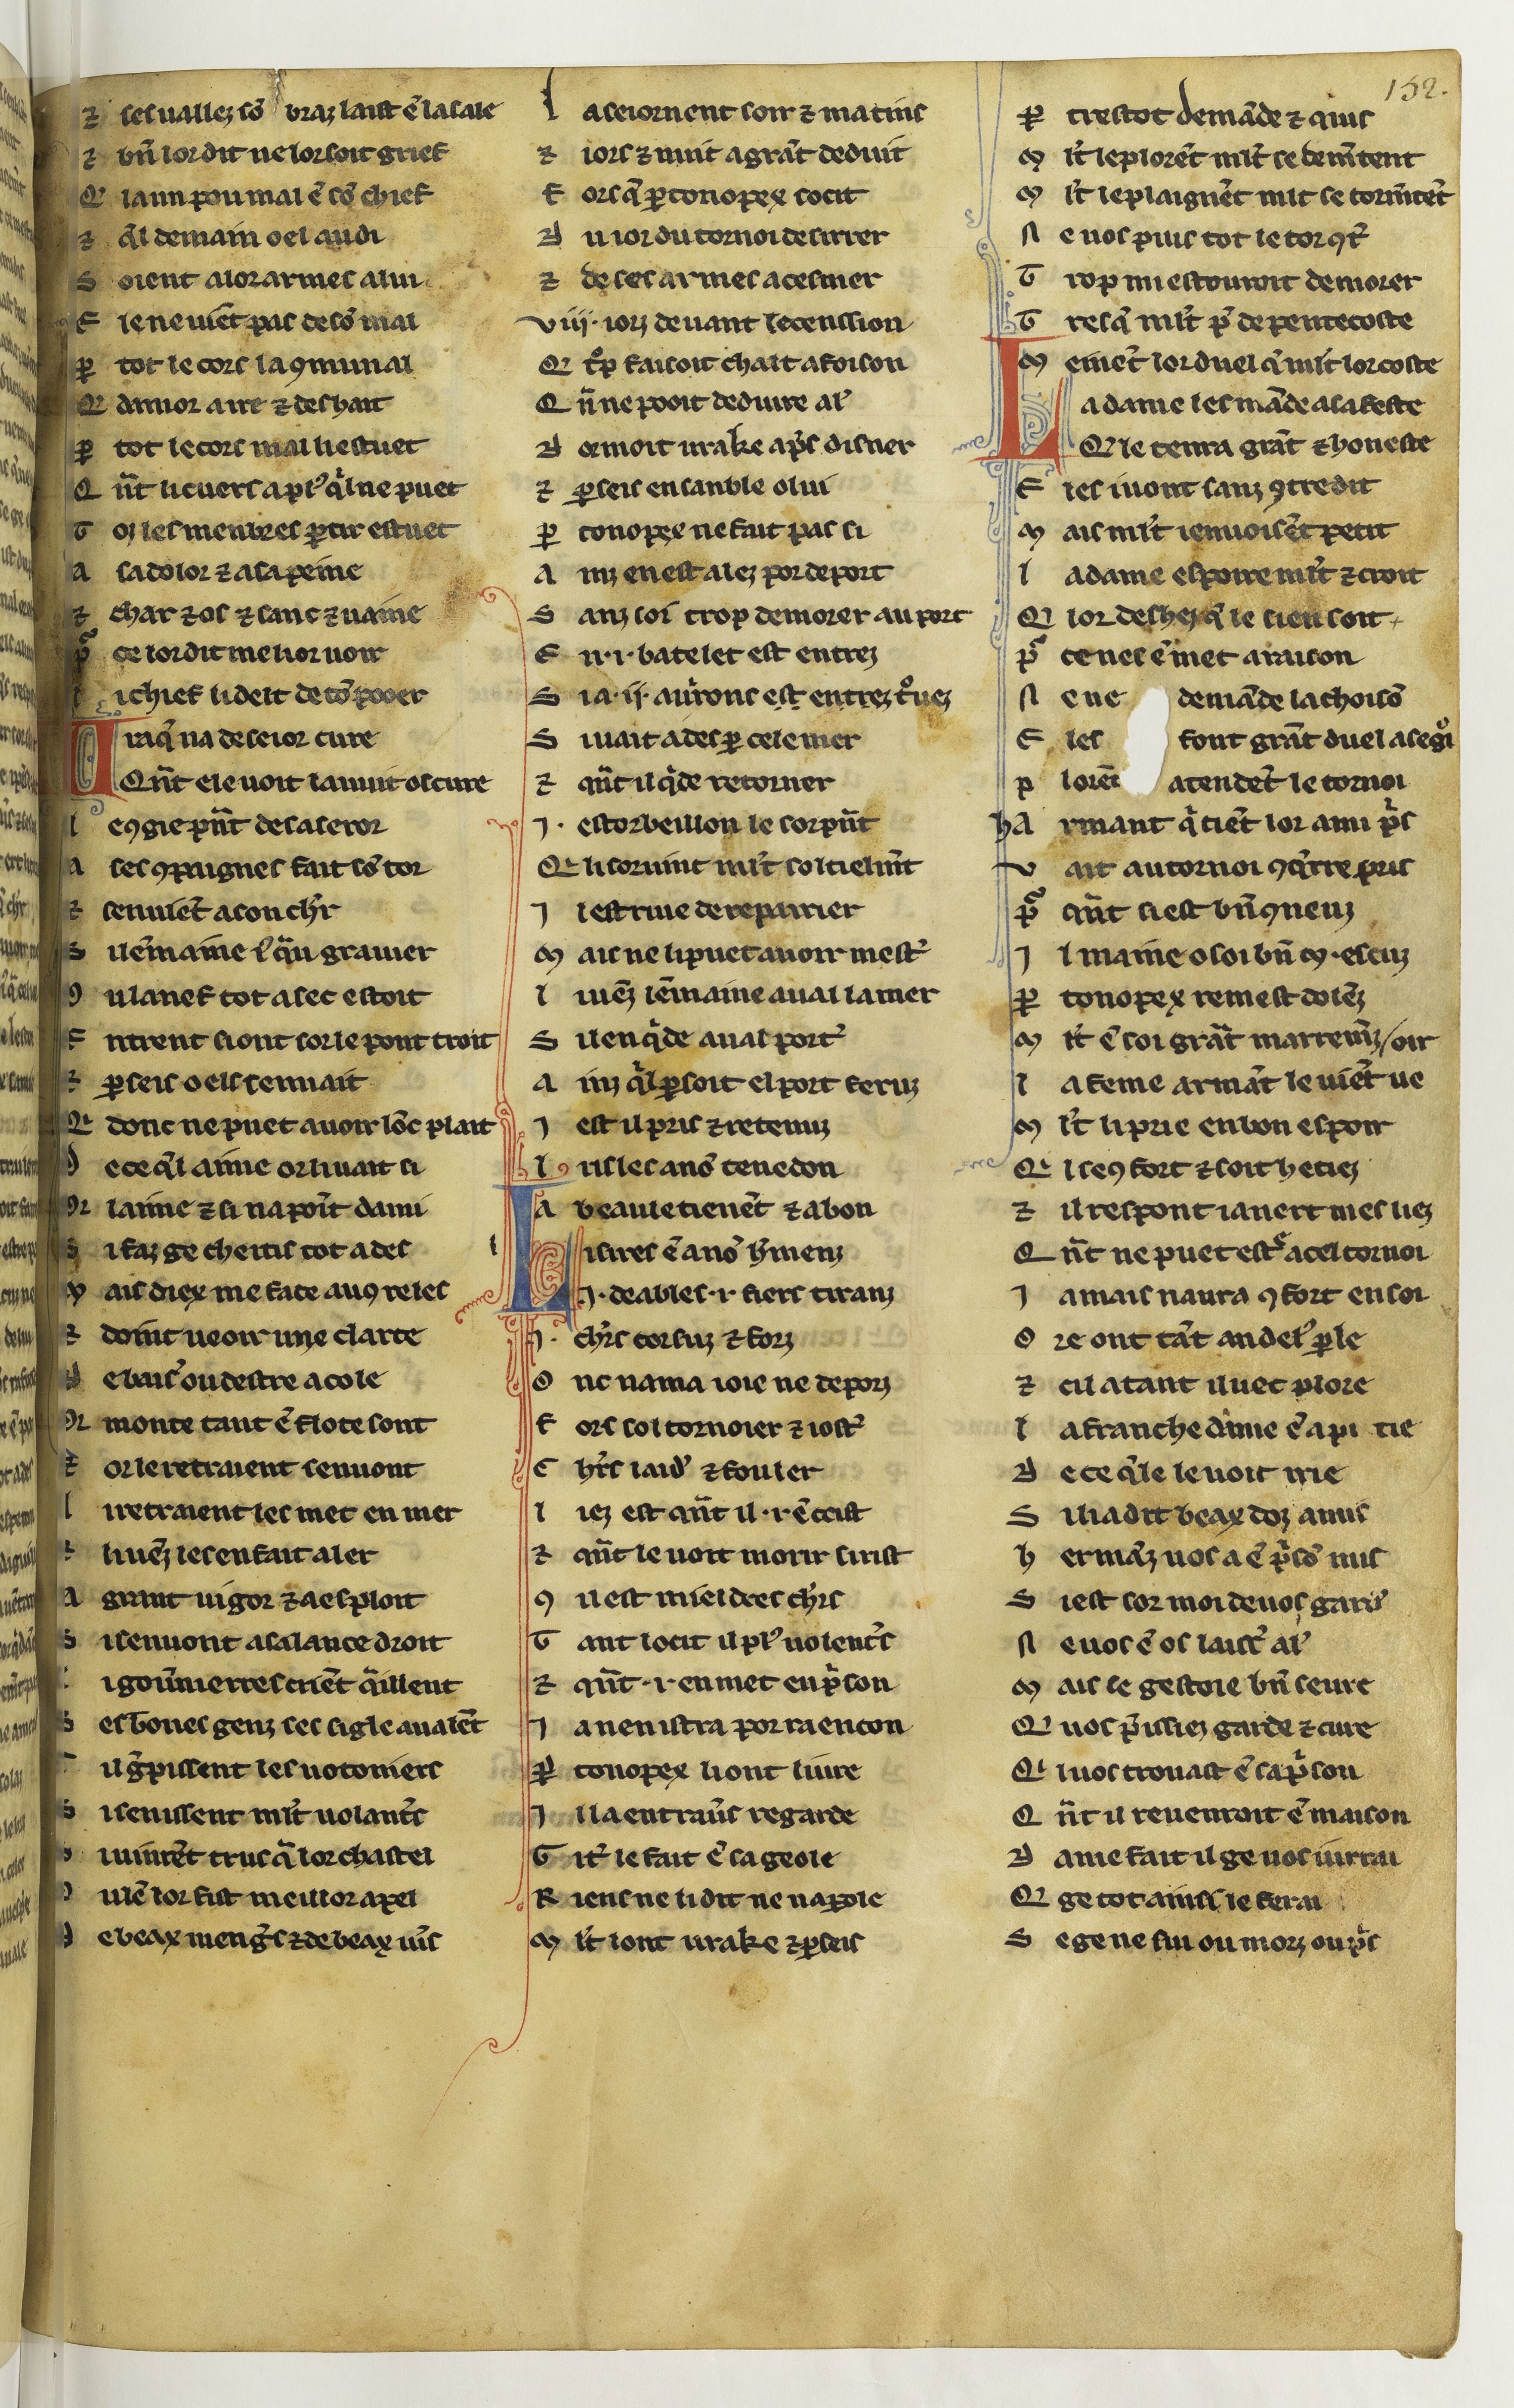 152.
⁊ ses uallez sõ braz laist ẽ la sale
⁊ bn̄ lor dit ne lor soit grief
Q' laun pou mal ẽ sõ chief
⁊ q̃l demain oel au di
S oient a lor armes a lui
E le ne uiẽt pas de sõ mal
ꝑ tot le cors la ꝯmunal
Q' damor aire ⁊ deshait
ꝑ tot le cors mal li estuet
Q n̄t li cuers a pl' q̃l ne puet
T oz les menbres ꝑtir estuet
A sa dolor ⁊ a sa peine
⁊ char ⁊ os ⁊ sanc ⁊ uaine
p̃ ce lor dit melior uoir
l i chief li deit de tõ pooer
U raq̃ na de seior cure
Qn̄t ele uoit la nuit oscure
l e ꝯgie pn̄t de sa seror
A ses ꝯpaignes fait sõ tor
⁊ sen uiẽt a son chr̃
S il ẽmaine l' q̃u grauier
ꝯ u la nef tot a sec estoit
E ntrent si ont sor le pont troit
⁊ ꝑseis o els sen uait
Q' donc ne puet auoir lõc plait
D e ce q̃l aime or li uait si
Q' laime ⁊ si na point dami
S i faz ge chertis tot ades
M ais diex me face auꝯ reles
⁊ doint ueoir une clarte
D e bais' ou destre acole
Q' monte tant ẽ flote sont
⁊ or le retraient sen uont
l i retraient les met en mer
⁊ li uẽz les en fait aler
A grant uigor ⁊ a esploit
S i sen uont a salance droit
l i gou̾nierres criẽt q̃illent
S es bones genz ses sigle aualẽt
S il g̃pissent les notoniers
S i sen issent ml't uolant's
S i uindrẽt trus q̃ lor chastel
ꝯ ulẽ lor fist meillor apel
D e beax meng's ⁊ de beax uĩs
l a seiornent soir ⁊ matins
⁊ iors ⁊ nuit a grãt deduit
F ors q̃ ꝑtonopex socit
D u ior du tornoi desirrer
⁊ de ses armes acesmer
viij. iorz deuant lecenssion
Q' t°p faisoit chalt a foison
Q n̄ ne pooit deduire al'
D ormoit urake ap̃s disner
⁊ ꝑseis ensanble o lui
ꝑ tonopex ne fait pas si
A inz en est alez por deport
S anz soi trop demorer au port
E n .i. batelet est entrez
S i a .ii. auirons est entrez t°uez
S i uait ades ꝑ cele mer
⁊ qn̄t il q̃de retorner
J . estorbeillon le sorpn̄t
Q' li soruint ml't soltielm̃t
J l estriue de repairier
M ais ne li puet auoir mest'
l i uẽz lẽmaine aual la mer
S il en q̃de aual port'
A inz q̃l ꝑsoit el port feruz
J est il pris ⁊ retenuz
l ri s les ans tenedon
A beau le tienẽt ⁊ a bon
L i sires ẽ ans h̃menz
J . deables .i. fiers tiranz
J . chr̃s corsuz ⁊ forz
O nc nama ioie ne deporz
F ors sol tornoier ⁊ iost'
C hr̃s laid' ⁊ fouler
l iez est qn̄t il .i. ẽ ocist
⁊ qn̄t le uoit morir si rist
ꝯ u il est mieldres chr̃s
T ant locit il pl' uolent's
⁊ qn̄t .i. en met en p̃son
J a nen istra por raencon
ꝑ tonopex li ont liure
J l la en trau's regarde
G it' le fait ẽ sa geole
R iens ne li dit ne na parole
M l't sont urake ⁊ ꝑseis
ꝑ trestot demãde ⁊ quis
M l't le plorẽt ml't se dem̃tent
M l't le plaignẽt ml't se torm̃tẽt
N e uos puis tot le tor ꝯt'
T rop mi estouroit demorer
T resq̃ ml't p̃ de pentecoste
M einẽt lor duel q̃ ml't lor coste
L a dame les mãde a sa feste
Q' le tenra grãt ⁊ honeste
E les i uont sanz ꝯtredit
M ais ml't i enuoisẽt petit
l a dame espoire ml't ⁊ croit
Q' lor deshez q̃ le sien soit
p̃ ce nes ẽmet a raison
N e ne demãde lachoisõ
E les font grãt duel a segi°
p lorẽt atendẽt le tornoi
hA rmant q̃ tiẽt lor ami p̃s
V ait au tornoi ꝯq̃rre pris
p̃ qn̄t si est bn̄ ꝯneuz
J l maine o soi bn̄ M. escuz
ꝑ tonopex remest dolẽz
M l't ẽ soi grãt marremẽz / oir
l a feme armãt le uiẽt ue
M l't li prie en bon espoir
Q' l se ꝯfort ⁊ soit hetiez
⁊ il respont ia nert mes liez
Q n̄t ne puet est' a cel tornoi
J amais naura ꝯfort en soi
O re ont tãt an del' ꝑle
⁊ cil a tant iluec plore
l a franche dame ẽ a pi tie
D e ce q̃le le uoit irie
S i li a dit beax doz amis
h ermãz uos a ẽ p̃sõ mis
S i est sor moi de uos gard'
N e uos ẽ os laiss' al'
M ais se gestoie bn̄ seure
Q' uos p̃issiez garde ⁊ cure
Q' l uos trouast ẽ sa p̃son
Q n̄t il reuenroit ẽ maison
D ame fait il ge uos iurrai
Q' ge tot ainsi le ferai
S e ge ne sui ou morz ou p̃s